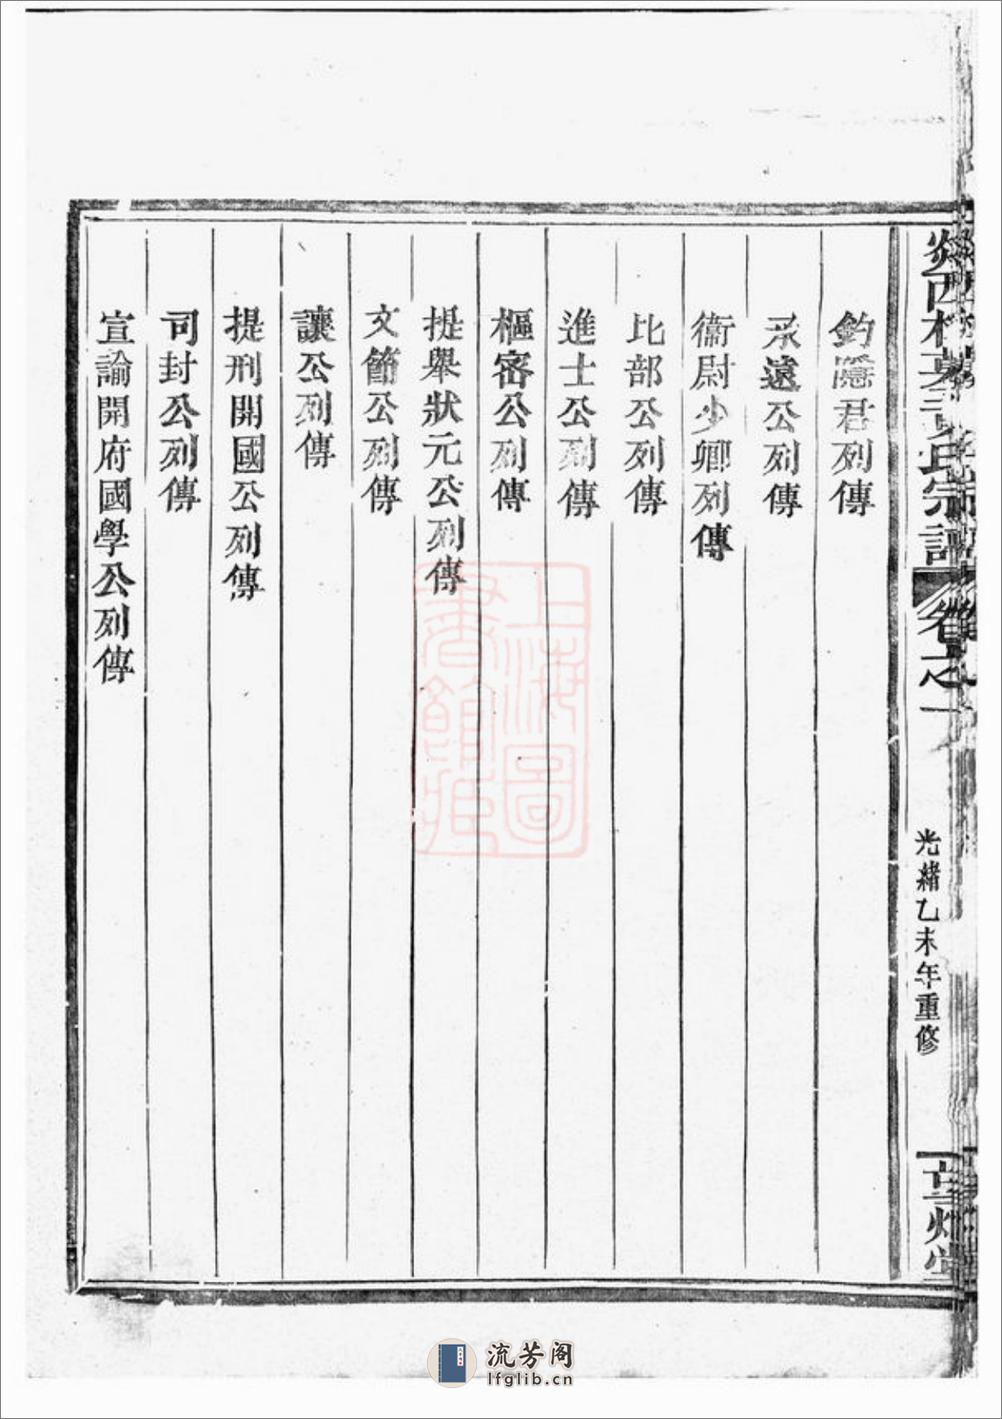 釣隱君列傳
永遠公列傳
衞尉少卿列傳
比部公列傳
進士公列傳
樞密公列傳
提舉狀元公列傳
文節公列傳
讓公列傳
提刑開國公列傳
司封公列傳
宣諭開府國學公列傳
氏宗譜
卷之一
光緒乙未年重修
上海圖
書館藏
流芳阁
lfglib.cn